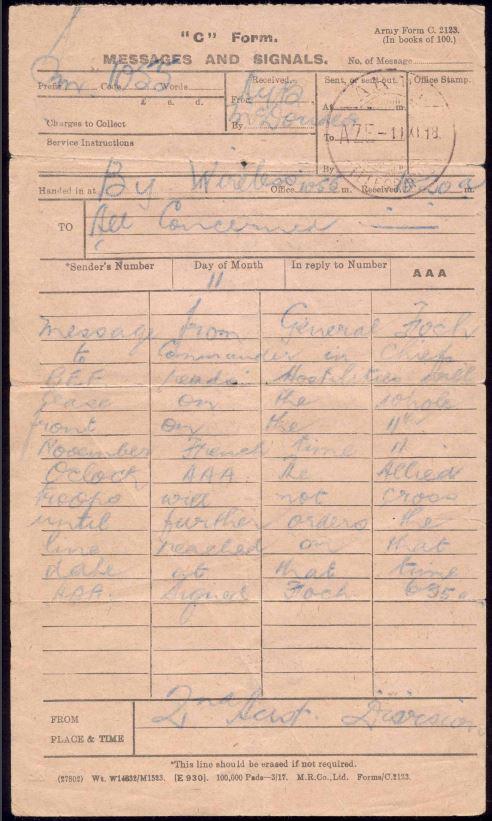 "C" Form.
Army Form C. 2123.
(In books of 100.)
MESSAGES AND SIGNALS.
No. of Message
Prefix Code Words
£ s. d.
Charges to Collect
Service Instructions
Received.
From
By
Sent, or sent out
At m.
To
By
Office Stamp.
AZE-11 XI 18
Handed in at By Wireless Office m. Received m.
TO All Concerned
*Sender's Number
Day of Month
In reply to Number
AAA
11
Message from General Foch
to Commander in Chief
BEF Hostilities will
cease on the whole
front on the 11th
November French time 11
O'clock AAA The Allied
troops will not cross
until further orders the
line reached on that
date at that time
AAA. Signed Foch 635
FROM
PLACE & TIME
2nd Aust. Division
*This line should be erased if not required.
(27802) Wt. W14832/M1523. [E 930]. 100,000 Pads—3/17. M.R.Co., Ltd. Forms/C.2123.